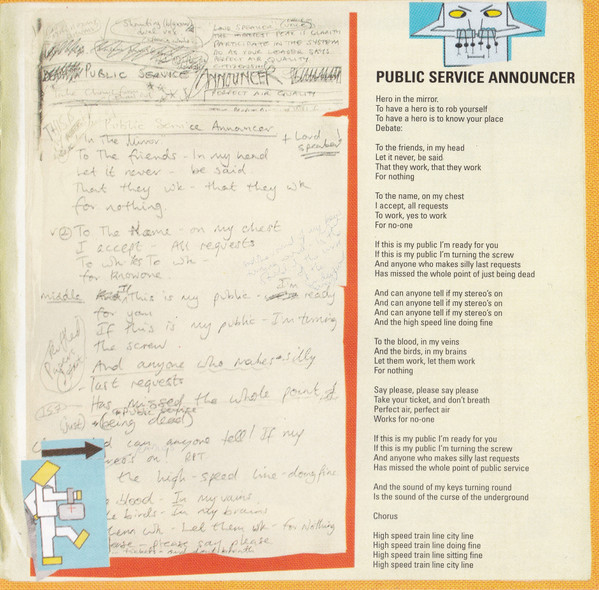 LOUD SPEAKER (VOICE)
PARTICIPATE IN THE SYSTEM
DO AS YOUR LEADER SAYS
PERFECT AIR QUALITY
PUBLIC SERVICE ANNOUNCER
PERFECT AIR QUALITY
Public Service Announcer
In the Mirror
To The friends - In my head
Let it never - be said
That they wk - that they wk
for nothing
To The Name - on my chest
I accept - All requests
To wk To wk -
for knowone
middle If This is my public - I'm ready
for you
If this is my public - I'm turning
the screw.
And anyone who makes silly
last requests
Has missed the whole point of
(being dead)
can anyone tell! If my
the high - speed line - doing fine
blood - In my veins
birds - In my brains
wk - Let them wk - for Nothing
please say please
PUBLIC SERVICE ANNOUNCER
Hero in the mirror.
To have a hero is to rob yourself
To have a hero is to know your place
Debate:
To the friends, in my head
Let it never, be said
That they work, that they work
For nothing
To the name, on my chest
I accept, all requests
To work, yes to work
For no-one
If this is my public I'm ready for you
If this is my public I'm turning the screw
And anyone who makes silly last requests
Has missed the whole point of just being dead
And can anyone tell if my stereo's on
And can anyone tell if my stereo's on
And can anyone tell if my stereo's on
And the high speed line doing fine
To the blood, in my veins
And the birds, in my brains
Let them work, let them work
For nothing
Say please, please say please
Take your ticket, and don't breath
Perfect air, perfect air
Works for no-one
If this is my public I'm ready for you
If this is my public I'm turning the screw
And anyone who makes silly last requests
Has missed the whole point of public service
And the sound of my keys turning round
Is the sound of the curse of the underground
Chorus
High speed train line city line
High speed train line doing fine
High speed train line sitting fine
High speed train line city line